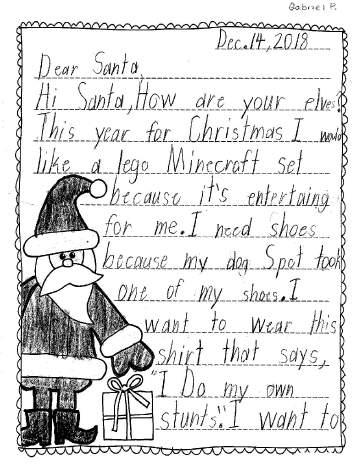 Gabriel P.
Dec. 14, 2018
Dear Santa,
Hi Santa, How are your elves?
This year for Christmas I would
like a lego Minecraft set
because it's entertaing
for me. I need shoes
because my dog Spot took
one of my shoes. I
want to wear this
shirt that says,
"I Do my own
stunts". I want to